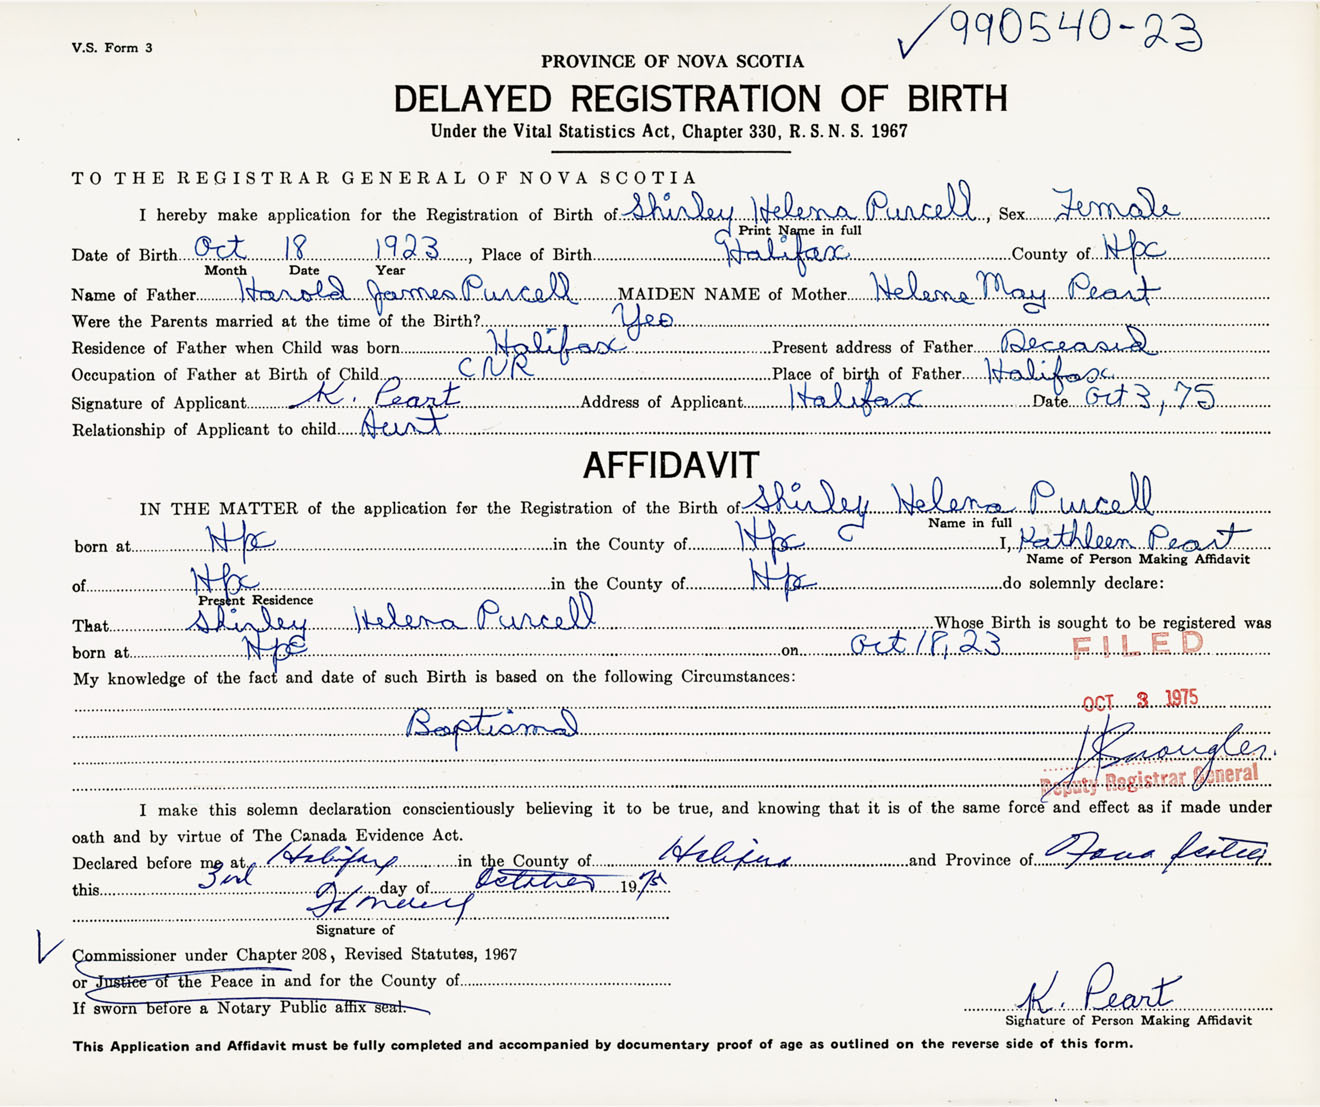 ✓990540-23
V.S. Form 3
PROVINCE OF NOVA SCOTIA
DELAYED REGISTRATION OF BIRTH
Under the Vital Statistics Act, Chapter 330, R. S. N. S. 1967
TO THE REGISTRAR GENERAL OF NOVA SCOTIA
I hereby make application for the Registration of Birth of Shirley Helena Purcell, Sex Female
Print Name in full
Date of Birth Oct 18 1923, Place of Birth Halifax County of Hfx
Month Date Year
Name of Father Harold James Purcell MAIDEN NAME of Mother Helene May Peart
Were the Parents married at the time of the Birth? Yes
Residence of Father when Child was born Halifax Present address of Father Deceased
Occupation of Father at Birth of Child CNR Place of birth of Father Halifax
Signature of Applicant K. Peart Address of Applicant Halifax Date Oct 3, 75
Relationship of Applicant to child Aunt
AFFIDAVIT
IN THE MATTER of the application for the Registration of the Birth of Shirley Helena Purcell
Name in full
born at Hfx in the County of Hfx I, Kathleen Peart
Name of Person Making Affidavit
of Hfx in the County of Hfx do solemnly declare:
Present Residence
That Shirley Helena Purcell Whose Birth is sought to be registered was
born at Hfx on Oct 18, 23
FILED
My knowledge of the fact and date of such Birth is based on the following Circumstances:
OCT 3 1975
Baptismal
Deputy Registrar General
I make this solemn declaration conscientiously believing it to be true, and knowing that it is of the same force and effect as if made under
oath and by virtue of The Canada Evidence Act.
Declared before me at Halifax in the County of Halifax and Province of Nova Scotia
this 3rd day of October 1975
Signature of
✓ Commissioner under Chapter 208, Revised Statutes, 1967
or Justice of the Peace in and for the County of
If sworn before a Notary Public affix seal.
K. Peart
Signature of Person Making Affidavit
This Application and Affidavit must be fully completed and accompanied by documentary proof of age as outlined on the reverse side of this form.